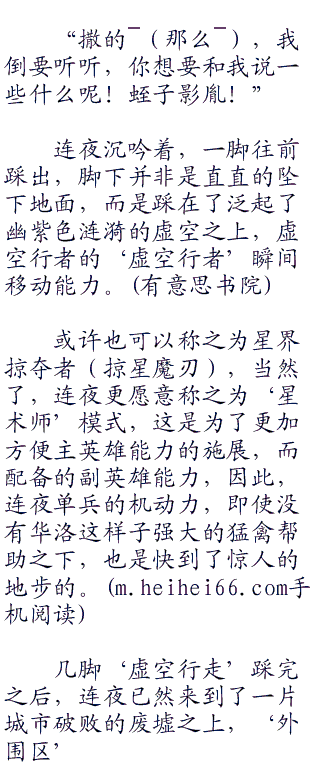 “撒的¯（那么¯），我
倒要听听，你想要和我说一
些什么呢！蛭子影胤！”
连夜沉吟着，一脚往前
踩出，脚下并非是直直的坠
下地面，而是踩在了泛起了
幽紫色涟漪的虚空之上，虚
空行者的‘虚空行者’瞬间
移动能力。(有意思书院)
或许也可以称之为星界
掠夺者（掠星魔刃），当然
了，连夜更愿意称之为‘星
术师’模式，这是为了更加
方便主英雄能力的施展，而
配备的副英雄能力，因此，
连夜单兵的机动力，即使没
有华洛这样子强大的猛禽帮
助之下，也是快到了惊人的
地步的。(m.heihei66.com手
机阅读)
几脚‘虚空行走’踩完
之后，连夜已然来到了一片
城市破败的废墟之上，‘外
围区’